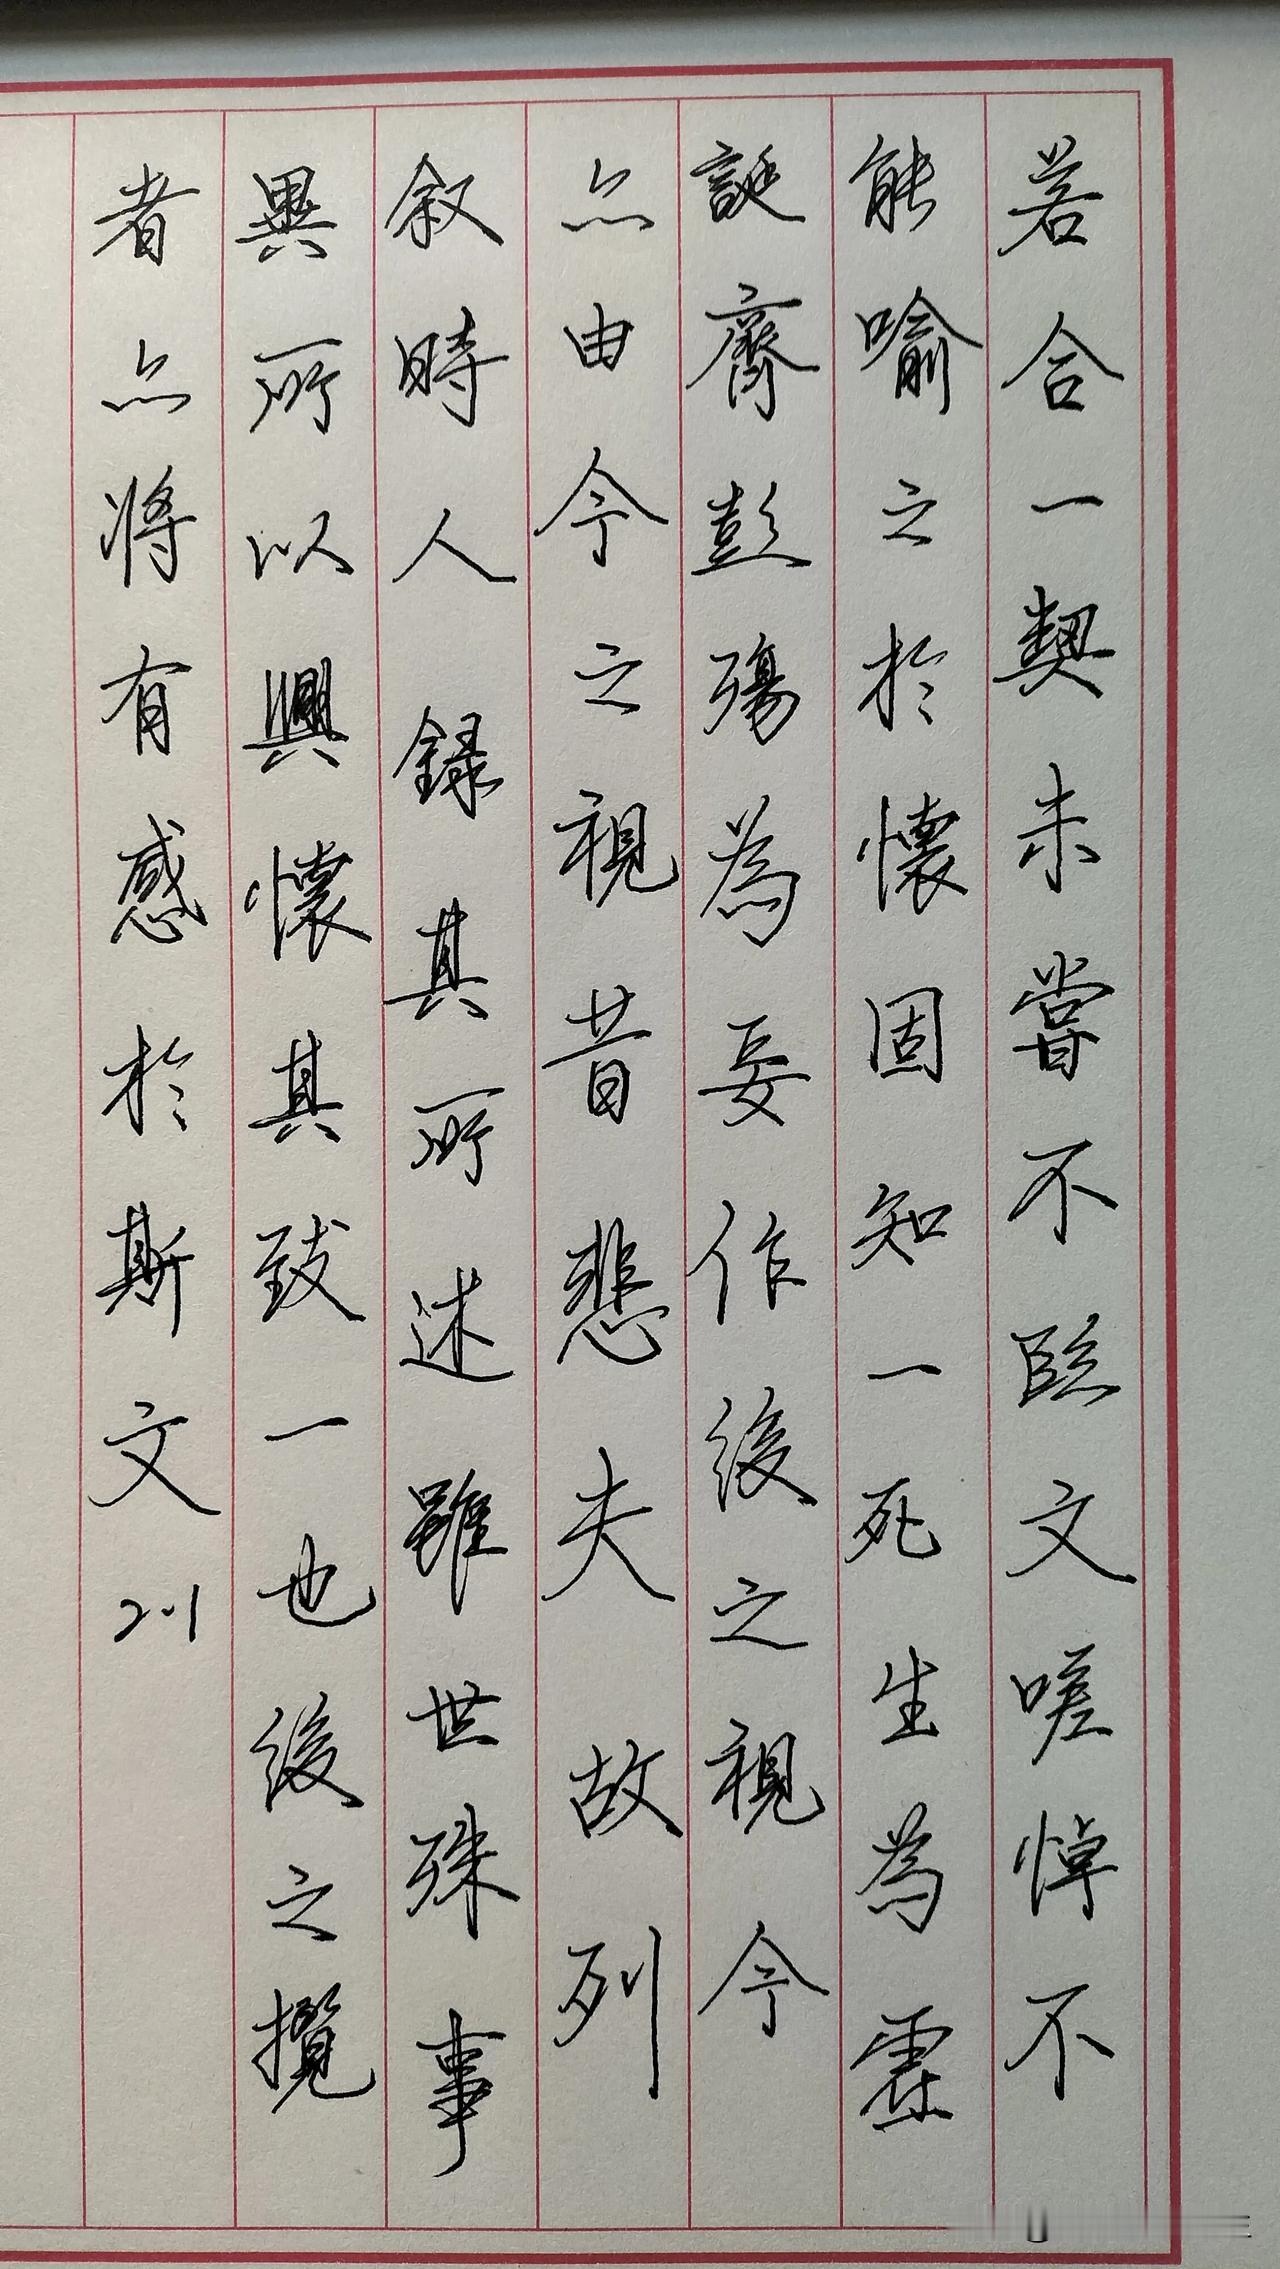 若合一契未嘗不臨文嗟悼不
能喻之於懷固知一死生為虛
誕齊彭殤為妄作後之視今
亦由今之視昔悲夫故列
叙時人錄其所述雖世殊事
異所以興懷其致一也後之攬
者亦將有感於斯文